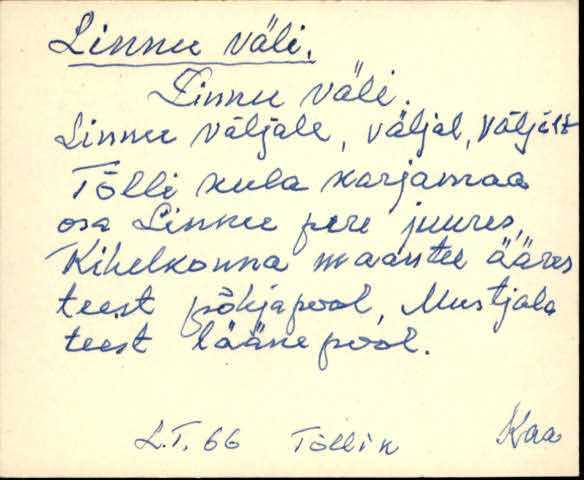 Linnu väli.
Linnu väli.
Linnu väljale, väljal, väljält
Tõlli küla karjamaa
osa Linnu pere juures,
Kihelkonna maantee ääres
teest põhjapool, Mustjala
teest läänepool.
L.T. 66 Töllik Kaa